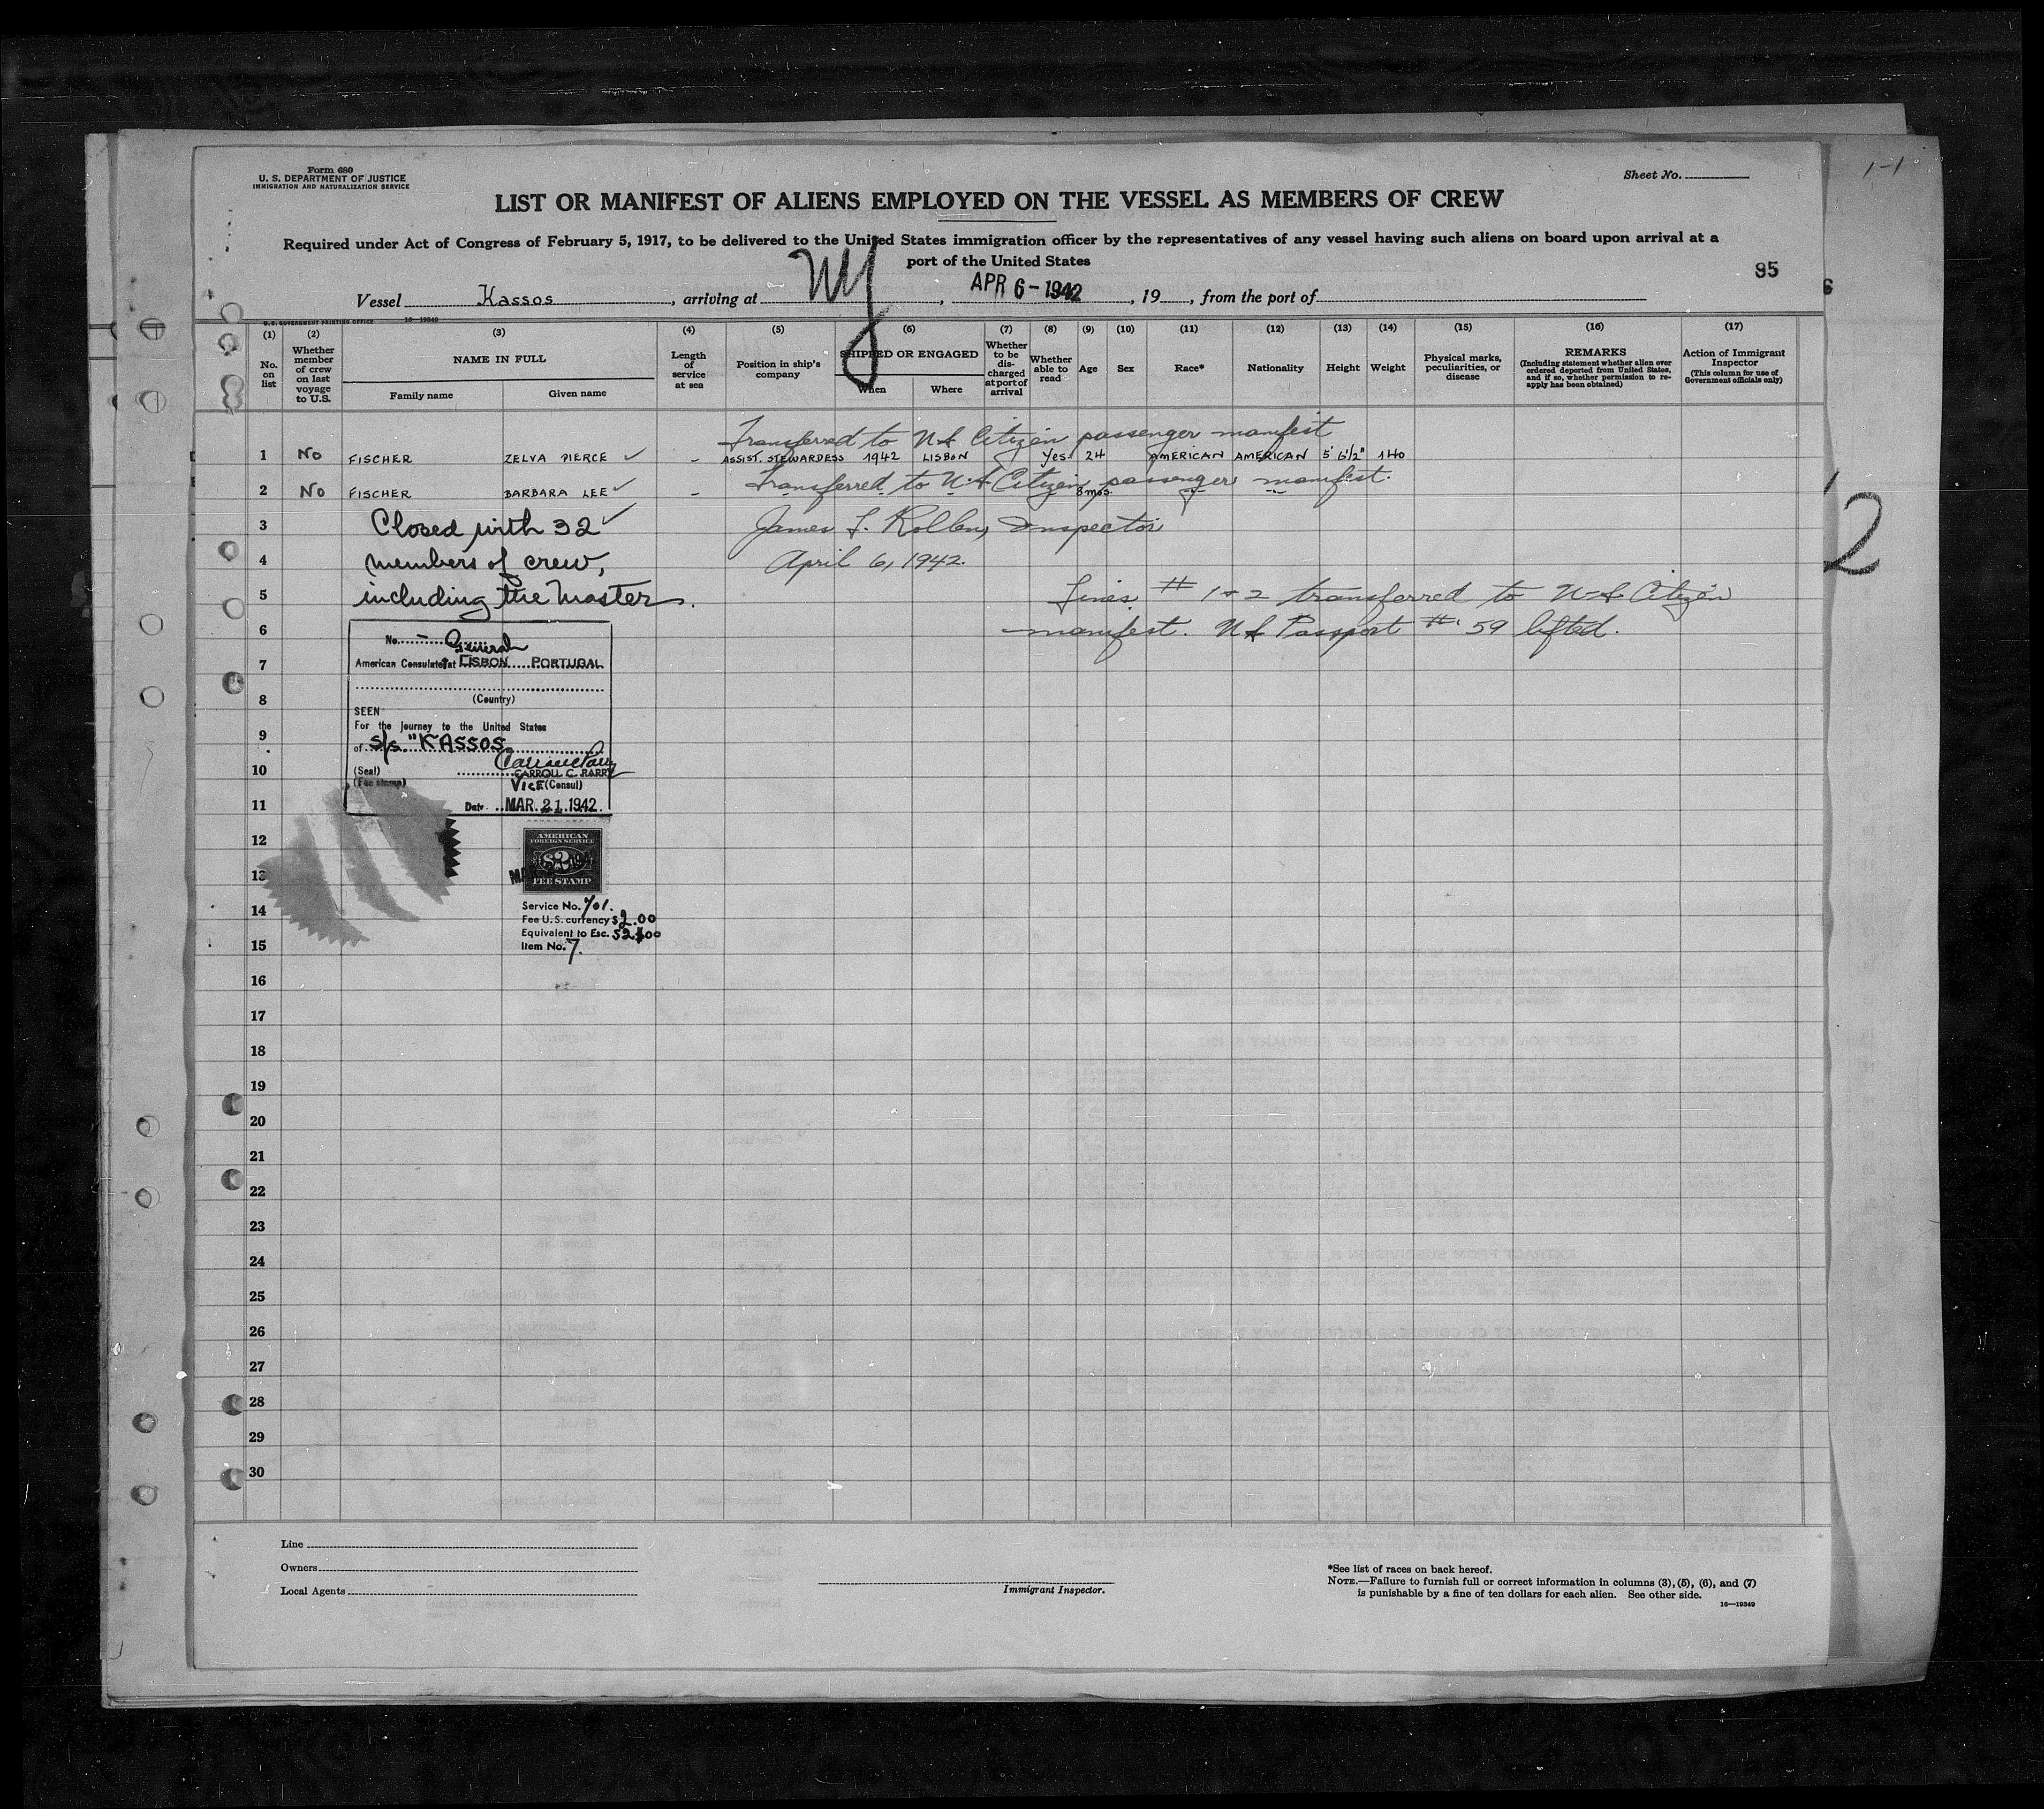 Form 680
U. S. DEPARTMENT OF JUSTICE
IMMIGRATION AND NATURALIZATION SERVICE
Sheet No.
1-1
LIST OR MANIFEST OF ALIENS EMPLOYED ON THE VESSEL AS MEMBERS OF CREW
Required under Act of Congress of February 5, 1917, to be delivered to the United States immigration officer by the representatives of any vessel having such aliens on board upon arrival at a
port of the United States
95
Vessel Kassos, arriving at NY, APR 6-1942, 19, from the port of
U.S. GOVERNMENT PRINTING OFFICE 16—19349
(1) (2) (3) (4) (5) (6) (7) (8) (9) (10) (11) (12) (13) (14) (15) (16) (17)
No. on list
Whether member of crew on last voyage to U.S.
NAME IN FULL
Family name
Given name
Length of service at sea
Position in ship's company
SHIPPED OR ENGAGED
When
Where
Whether to be discharged at port of arrival
Whether able to read
Age
Sex
Race*
Nationality
Height
Weight
Physical marks, peculiarities, or disease
REMARKS
(Including statement whether alien ever ordered deported from United States, and if so, whether permission to reapply has been obtained)
Action of Immigrant Inspector
(This column for use of Government officials only)
Transferred to US Citizen passenger manifest
1 No FISCHER ZELVA PIERCE ✓ - ASSIST. STEWARDESS 1942 LISBON Yes 24 AMERICAN AMERICAN 5' 6½" 140
Transferred to U.S. Citizen passenger manifest.
2 No FISCHER BARBARA LEE ✓ - 8 mos.
3 Closed with 32 ✓ James Inspector
2
4 members of crew, April 6, 1942.
5 including the Master. Lines # 1 & 2 transferred to US Citizen
6 manifest. US Passport # 59 lifted.
No. - General
7 American Consulate at LISBON PORTUGAL
8 (Country)
SEEN
For the journey to the United States
9 of S/S. "KASSOS
10 (Seal) CARROLL C. PARRY
(Fee stamp) VICE (Consul)
11 Date MAR. 21. 1942.
12 AMERICAN
FOREIGN SERVICE
$2
13 FEE STAMP
14 Service No. 701.
Fee U.S. currency $2.00
Equivalent to Esc. 52$00
15 Item No. 7.
16
17
18
19
20
21
22
23
24
25
26
27
28
29
30
Line
Owners
Local Agents
Immigrant Inspector.
*See list of races on back hereof.
NOTE.—Failure to furnish full or correct information in columns (3), (5), (6), and (7)
is punishable by a fine of ten dollars for each alien. See other side.
16—19349